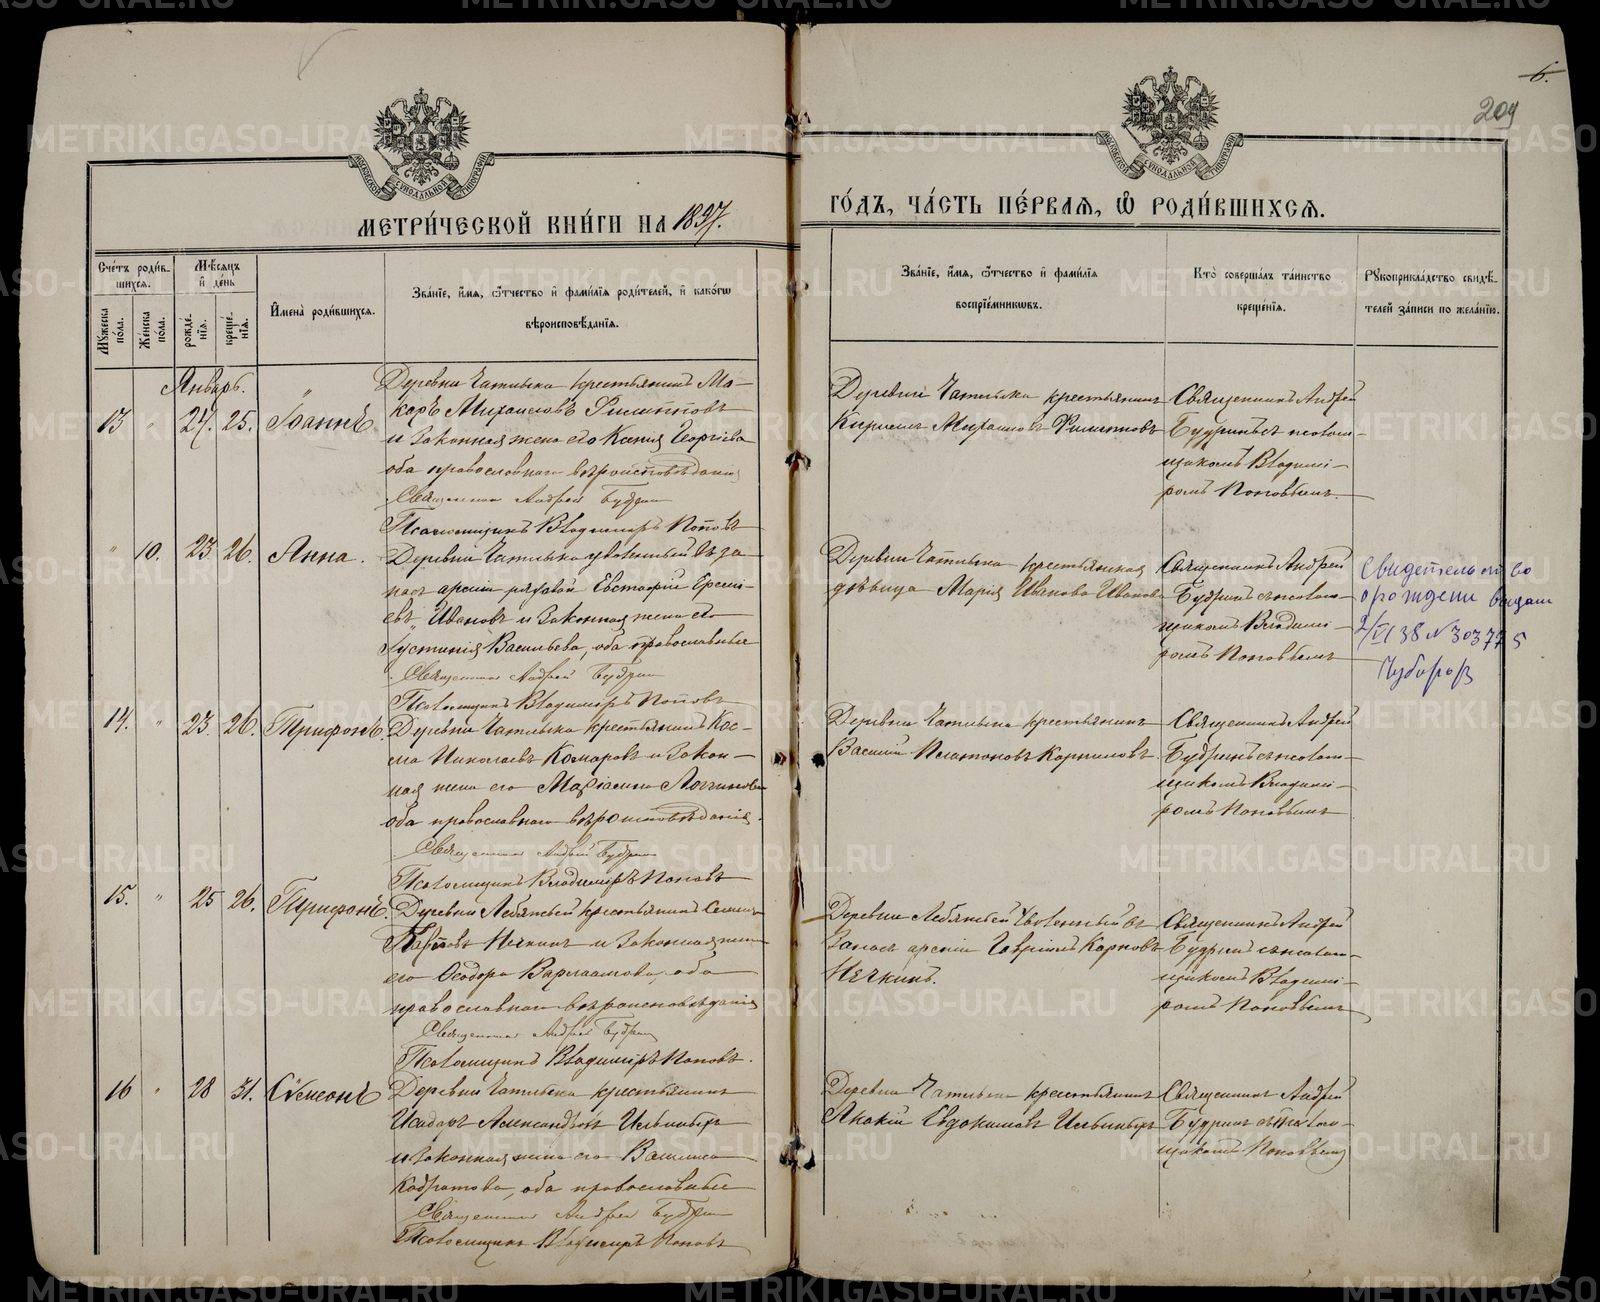 6.
209
МЕТРИ́ЧЕСКОЙ КНИ́ГИ НА 1897.
ГО́ДЪ, ЧА́СТЬ ПЕ́РВАЯ, Ѡ РОДИ́ВШИХСЯ.
Сче́тъ роди́в-
шихся.
Мѣ́сяцъ
и де́нь
Му́жеска по́ла.
Же́нска по́ла.
рожде́-
нія.
креще́-
нія.
И́мена роди́вшихся.
Зва́ніе, и́мя, ѻ́тчество и фами́лія роди́телей, и како́гѡ
вѣроисповѣ́данія.
Зва́ніе, и́мя, ѻ́тчество и фами́лія
воспріе́мниковъ.
Кто̀ соверша́лъ та́инство
креще́нія.
Рукоприкла́дство свидѣ́-
телей за́писи по жела́нію.
Январь.
13 " 24. 25. Іоаннъ.
крестьянинъ Ма-
каръ Михаиловъ Филипповъ
и законная жена его Ксенія Георгіева
оба православнаго вѣроисповѣданія
Священникъ Андрей Будринъ
Псаломщикъ Владиміръ Поповъ
крестьянинъ
Кириллъ Михаиловъ Филипповъ
Священникъ Андрей
Будринъ съ псалом-
щикомъ Владимі-
ромъ Поповымъ.
" 10. 23 26. Анна.
уволенный въ за-
пасъ арміи рядовой Евстафій Ереме-
евъ Ивановъ и законная жена его
Іустинія Васильева, оба православные
Священникъ Андрей Будринъ
Псаломщикъ Владиміръ Поповъ
крестьянская
дѣвица Марія Иванова Иванова
Священникъ Андрей
Будринъ съ псалом-
щикомъ Владимі-
ромъ Поповымъ
Свидетельство
о рождении выдано
2/VI 38 № 303775
14. " 23. 26. Трифонъ.
крестьянинъ Кос-
ма Николаевъ Комаровъ и закон-
ная жена его Логинова
оба православнаго вѣроисповѣданія.
Священникъ Андрей Будринъ
Псаломщикъ Владиміръ Поповъ
крестьянинъ
Василій Платоновъ Корниловъ
Священникъ Андрей
Будринъ съ псалом-
щикомъ Владимі-
ромъ Поповымъ
15. " 25 26. Трифонъ.
Деревни Лебяжьей крестьянинъ
Карповъ Нечкинъ и законная жена
его Ѳеодора Варлаамова, оба
православнаго вѣроисповѣданія
Священникъ Андрей Будринъ
Псаломщикъ Владиміръ Поповъ.
Деревни Лебяжьей уволенный въ
запасъ арміи Гавріилъ Карповъ
Нечкинъ.
Священникъ Андрей
Будринъ съ псалом-
щикомъ Владимі-
ромъ Поповымъ
16 " 28 31. Сѵмеонъ
крестьянинъ
Исидоръ Александровъ Ильиныхъ
и законная жена его Васса
Кодратова, оба православные
Священникъ Андрей Будринъ
Псаломщикъ Владиміръ Поповъ
крестьянинъ
Акакій Евдокимовъ Ильиныхъ
Священникъ Андрей
Будринъ съ псалом-
щикомъ Поповымъ
METRIKI.GASO-URAL.RU